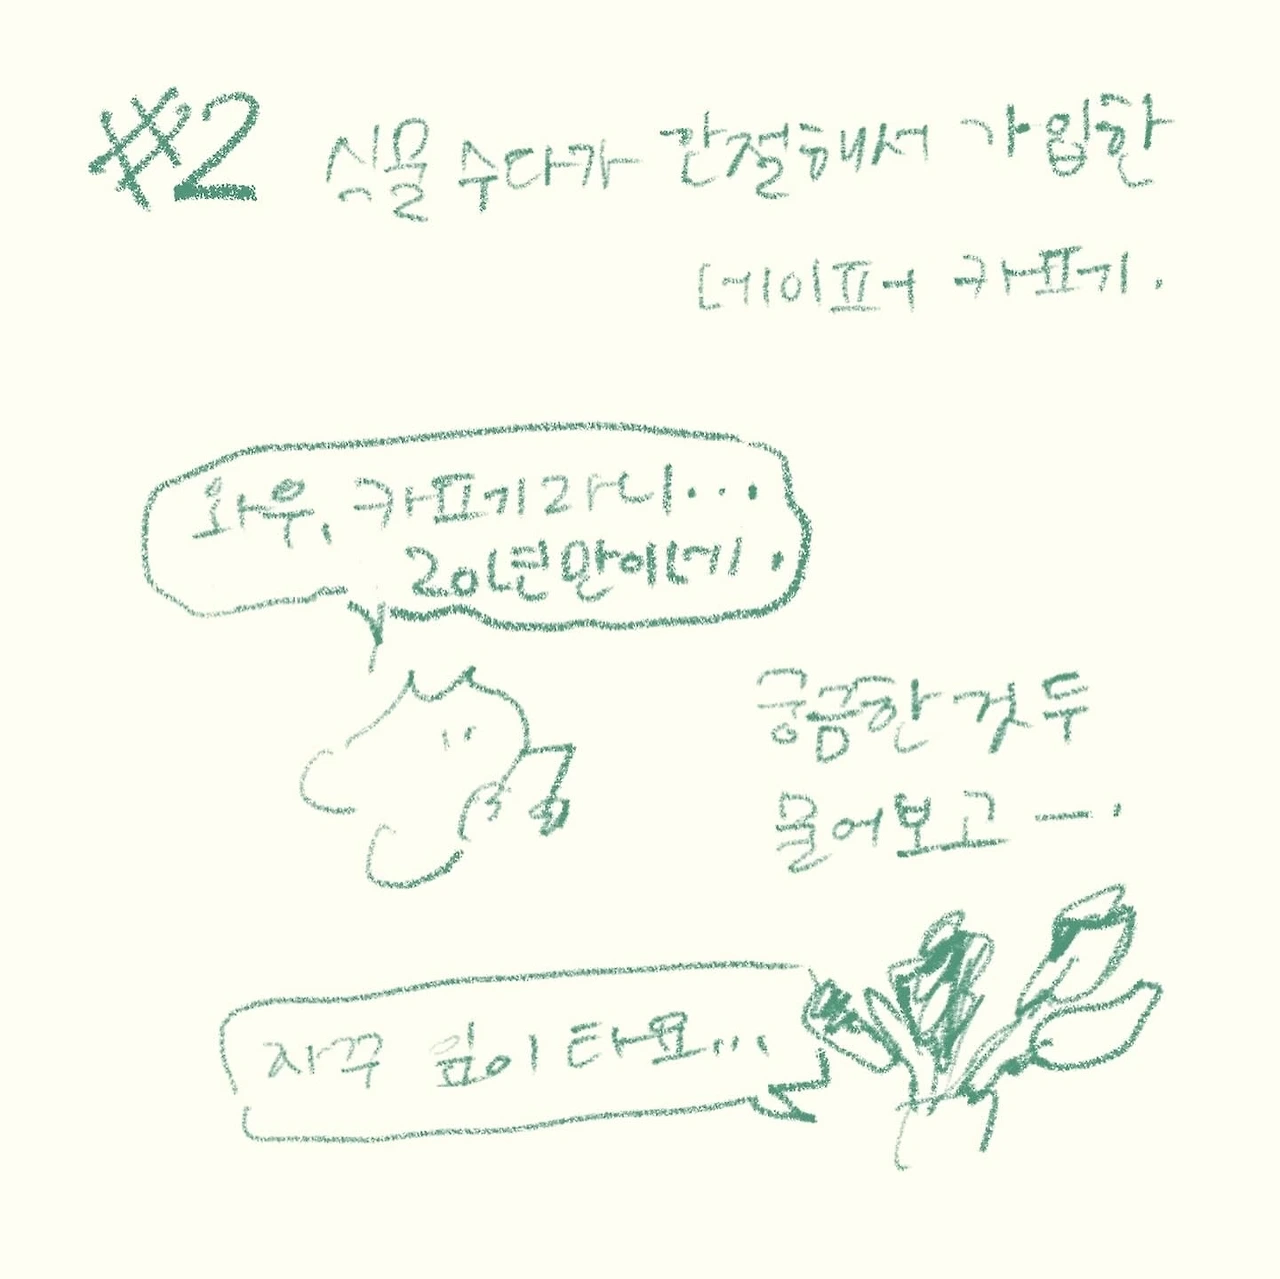 #2 식물 수다가 간절해서 가입한
네이표ㅓ 카표기.
와우, 카표기라니...
20년만이네.
궁금한 것두
물어보고 —.
자꾸 잎이 타요...